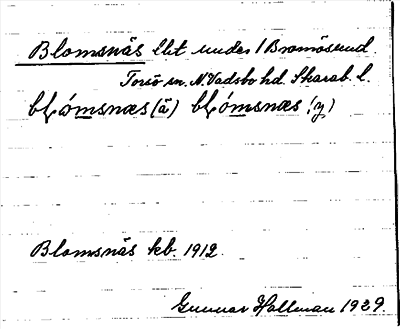 Blomsnäs lht under 1 Bromösund.
Torsö sn. N. Vadsbo hd. Skarab. l.
blómsnæs (ä) blómsnæs (y)
Blomsnäs kb. 1912.
Gunnar Hallman 1929.